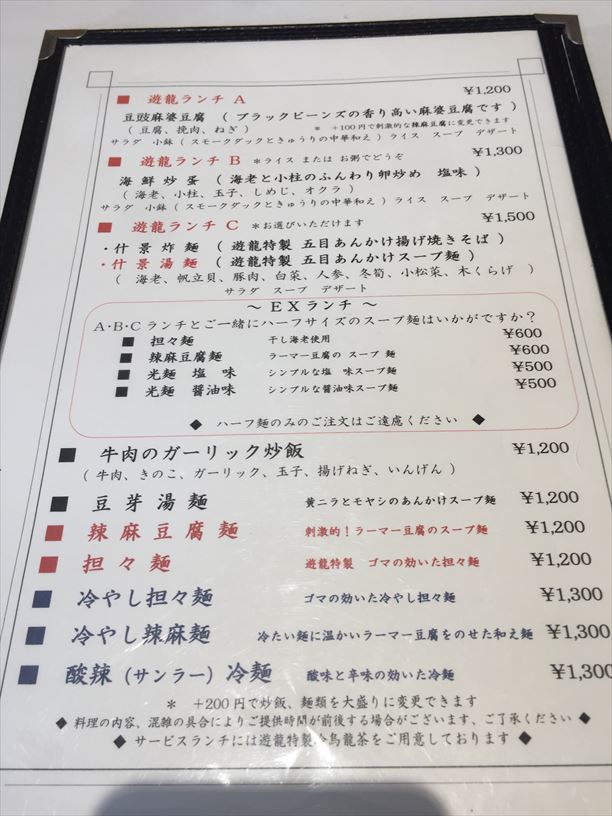 ■ 遊龍ランチ A ¥1,200
豆豉麻婆豆腐 （ ブラックビーンズの香り高い麻婆豆腐です ）
（ 豆腐、挽肉、ねぎ ） ＊ +100円で刺激的な辣麻豆腐に変更できます
サラダ 小鉢（スモークダックときゅうりの中華和え）ライス スープ デザート
■ 遊龍ランチ B ＊ライス または お粥でどうぞ ¥1,300
海鮮炒蛋 （ 海老と小柱のふんわり卵炒め 塩味 ）
（ 海老、小柱、玉子、しめじ、オクラ ）
サラダ 小鉢（スモークダックときゅうりの中華和え）ライス スープ デザート
■ 遊龍ランチ C ＊お選びいただけます ¥1,500
・什景炸麺 （ 遊龍特製 五目あんかけ揚げ焼きそば ）
・什景湯麺 （ 遊龍特製 五目あんかけスープ麺 ）
（ 海老、帆立貝、豚肉、白菜、人参、冬筍、小松菜、木くらげ ）
サラダ スープ デザート
～ EXランチ ～
A・B・Cランチとご一緒にハーフサイズのスープ麺はいかがですか？
■ 担々麺 干し海老使用 ¥600
■ 辣麻豆腐麺 ラーマー豆腐の スープ 麺 ¥600
■ 光麺 塩 味 シンプルな塩 味スープ麺 ¥500
■ 光麺 醤油味 シンプルな醤油味スープ麺 ¥500
◆ ハーフ麺のみのご注文はご遠慮ください ◆
■ 牛肉のガーリック炒飯 ¥1,200
（ 牛肉、きのこ、ガーリック、玉子、揚げねぎ、いんげん ）
■ 豆芽湯麺 黄ニラとモヤシのあんかけスープ麺 ¥1,200
■ 辣麻豆腐麺 刺激的！ラーマー豆腐のスープ麺 ¥1,200
■ 担々麺 遊龍特製 ゴマの効いた担々麺 ¥1,200
■ 冷やし担々麺 ゴマの効いた冷やし担々麺 ¥1,300
■ 冷やし辣麻麺 冷たい麺に温かいラーマー豆腐をのせた和え麺 ¥1,300
■ 酸辣（サンラー）冷麺 酸味と辛味の効いた冷麺 ¥1,300
＊ +200円で炒飯、麺類を大盛りに変更できます
◆ 料理の内容、混雑の具合によりご提供時間が前後する場合がございます、ご了承ください ◆
◆ サービスランチには遊龍特製冷烏龍茶をご用意しております ◆